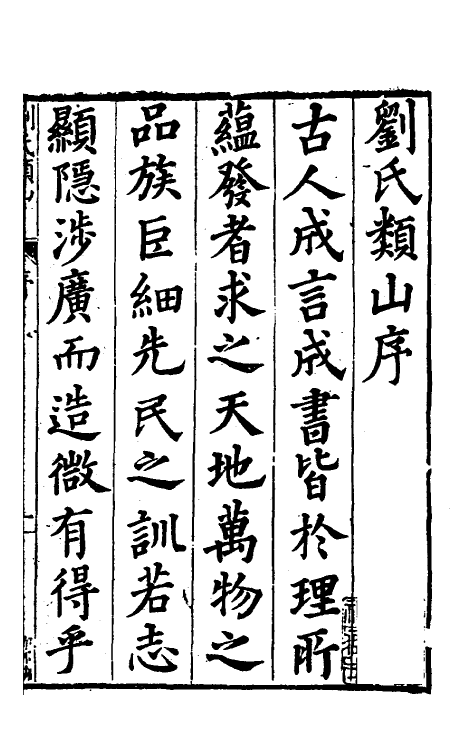 劉氏類山序
古人成言成書皆於理所
蘊發者求之天地萬物之
品族巨細先民之訓若志
顯隱涉廣而造微有得乎